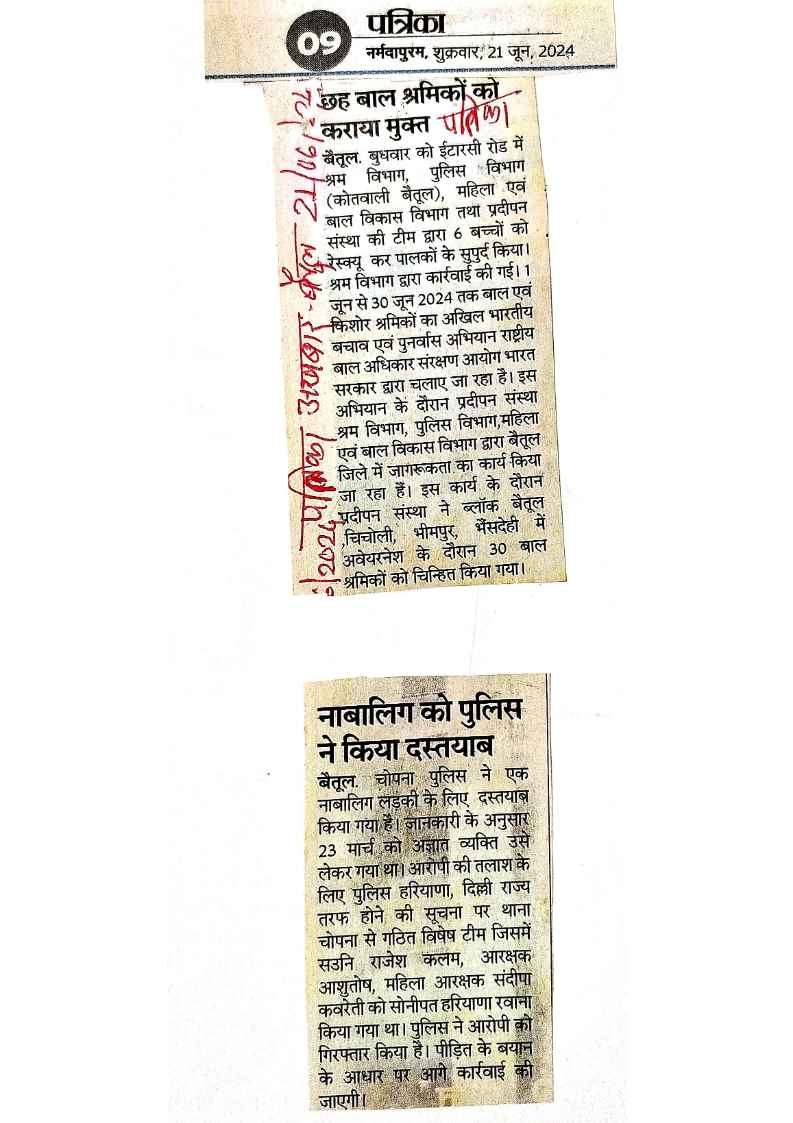 09
पत्रिका
नर्मदापुरम, शुक्रवार, 21 जून, 2024
छह बाल श्रमिकों को
कराया मुक्त पत्रिका
बैतूल. बुधवार को ईटारसी रोड में
श्रम विभाग, पुलिस विभाग
(कोतवाली बैतूल), महिला एवं
बाल विकास विभाग तथा प्रदीपन
संस्था की टीम द्वारा 6 बच्चों को
रेस्क्यू कर पालकों के सुपुर्द किया।
श्रम विभाग द्वारा कार्रवाई की गई। 1
जून से 30 जून 2024 तक बाल एवं
किशोर श्रमिकों का अखिल भारतीय
बचाव एवं पुनर्वास अभियान राष्ट्रीय
बाल अधिकार संरक्षण आयोग भारत
सरकार द्वारा चलाए जा रहा है। इस
अभियान के दौरान प्रदीपन संस्था
श्रम विभाग, पुलिस विभाग,महिला
एवं बाल विकास विभाग द्वारा बैतूल
जिले में जागरूकता का कार्य किया
जा रहा हैं। इस कार्य के दौरान
प्रदीपन संस्था ने ब्लॉक बैतूल
,चिचोली, भीमपुर, भैंसदेही में
अवेयरनेश के दौरान 30 बाल
श्रमिकों को चिन्हित किया गया।
पत्रिका अखबार - बैतूल 21/06/
/2024
नाबालिग को पुलिस
ने किया दस्तयाब
बैतूल. चोपना पुलिस ने एक
नाबालिग लड़की के लिए दस्तयाब
किया गया है। जानकारी के अनुसार
23 मार्च को अज्ञात व्यक्ति उसे
लेकर गया था। आरोपी की तलाश के
लिए पुलिस हरियाणा, दिल्ली राज्य
तरफ होने की सूचना पर थाना
चोपना से गठित विषेष टीम जिसमें
सउनि राजेश कलम, आरक्षक
आशुतोष, महिला आरक्षक संदीपा
कवरेती को सोनीपत हरियाणा रवाना
किया गया था। पुलिस ने आरोपी को
गिरफ्तार किया है। पीड़ित के बयान
के आधार पर आगे कार्रवाई की
जाएगी।